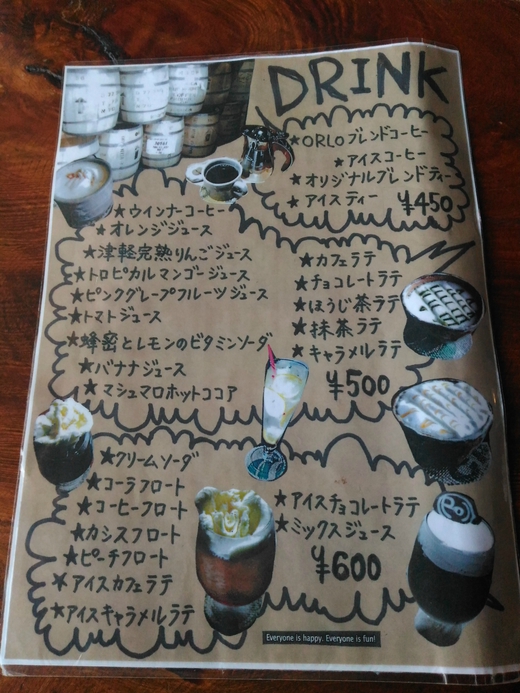 DRINK
★ORLOブレンドコーヒー
★アイスコーヒー
★オリジナルブレンドティー
★アイスティー ¥450
★ウインナーコーヒー
★オレンジジュース
★津軽完熟りんごジュース
★トロピカルマンゴージュース
★ピンクグレープフルーツジュース
★トマトジュース
★蜂蜜とレモンのビタミンソーダ
★バナナジュース
★マシュマロホットココア
★カフェラテ
★チョコレートラテ
★ほうじ茶ラテ
★抹茶ラテ
★キャラメルラテ
¥500
★クリームソーダ
★コーラフロート
★コーヒーフロート
★カシスフロート
★ピーチフロート
★アイスカフェラテ
★アイスキャラメルラテ
★アイスチョコレートラテ
★ミックスジュース
¥600
Everyone is happy. Everyone is fun!